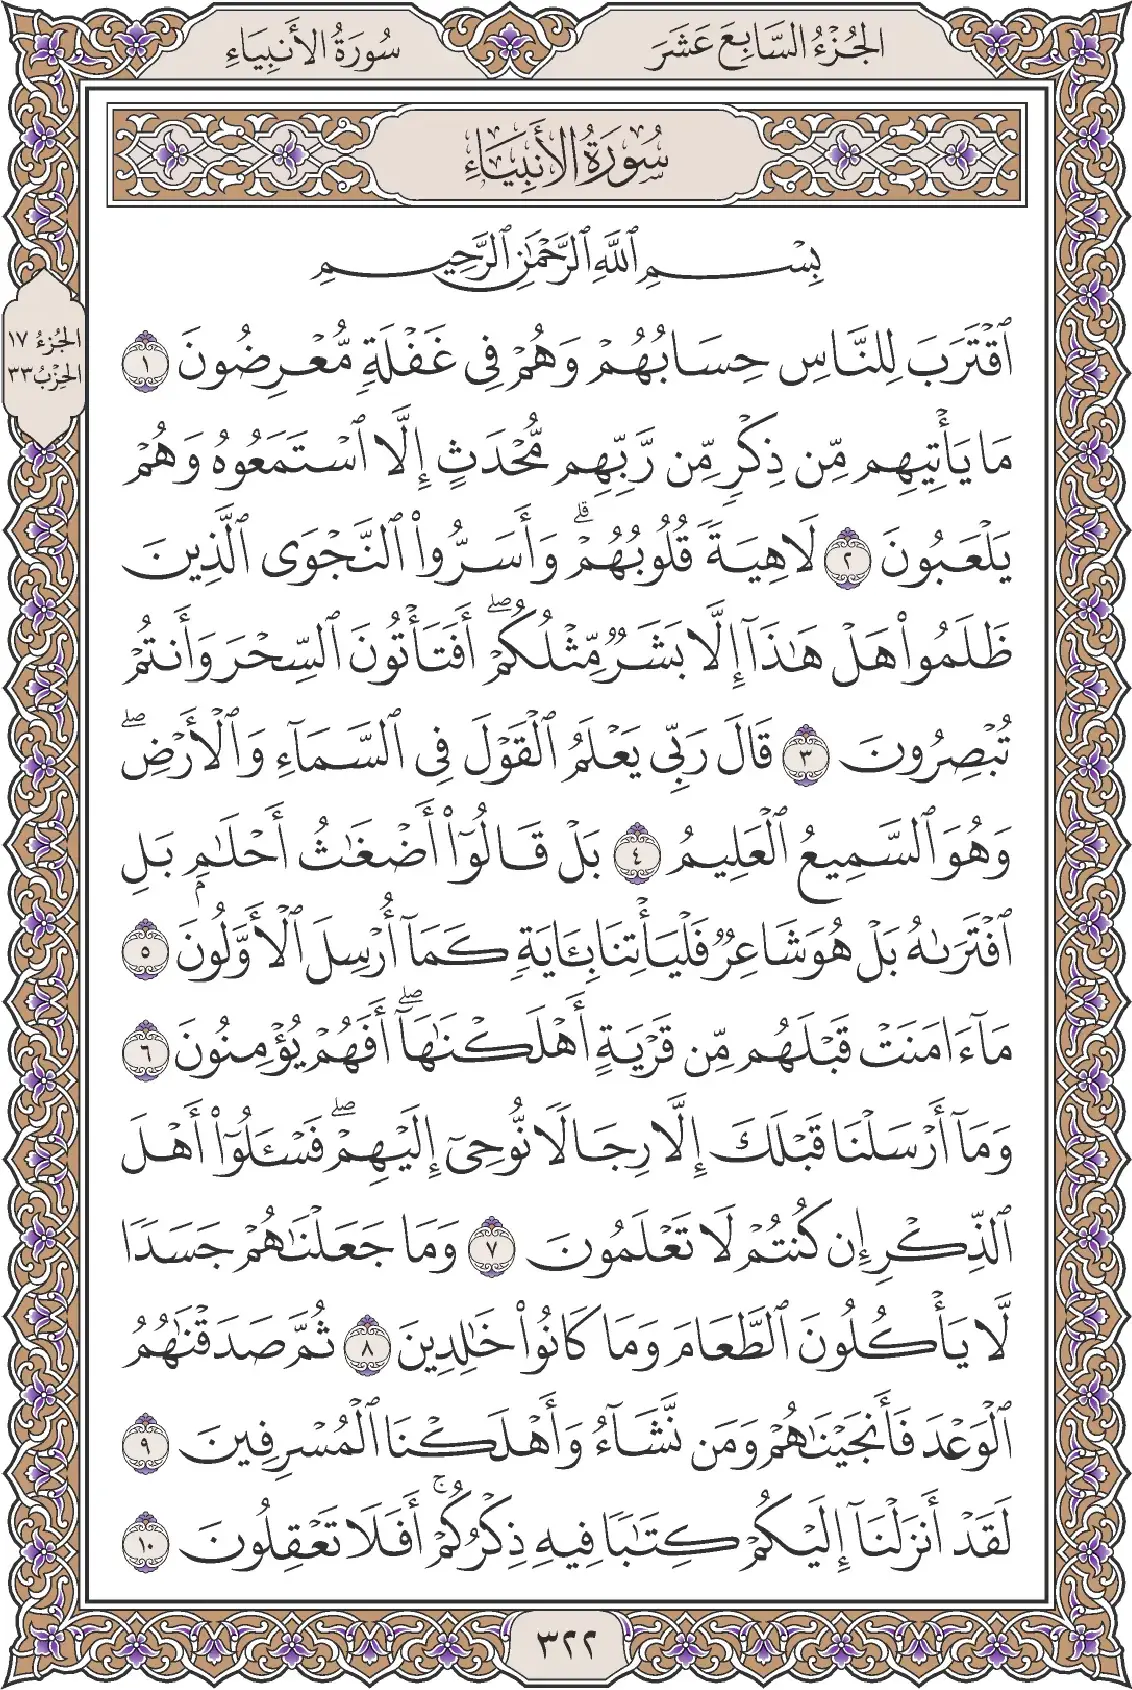 الجُزْءُ السَّابِعَ عَشَرَ
سُورَةُ الأَنبِيَاءِ
سُورَةُ الأَنبِيَاءِ
بِسْمِ ٱللَّهِ ٱلرَّحْمَٰنِ ٱلرَّحِيمِ
الجُزْءُ ١٧
الحِزْبُ ٣٣
ٱقْتَرَبَ لِلنَّاسِ حِسَابُهُمْ وَهُمْ فِي غَفْلَةٍ مُّعْرِضُونَ ١
مَا يَأْتِيهِم مِّن ذِكْرٍ مِّن رَّبِّهِم مُّحْدَثٍ إِلَّا ٱسْتَمَعُوهُ وَهُمْ
يَلْعَبُونَ ٢ لَاهِيَةً قُلُوبُهُمْۗ وَأَسَرُّواْ ٱلنَّجْوَى ٱلَّذِينَ
ظَلَمُواْ هَلْ هَٰذَآ إِلَّا بَشَرٌ مِّثْلُكُمْۖ أَفَتَأْتُونَ ٱلسِّحْرَ وَأَنتُمْ
تُبْصِرُونَ ٣ قَالَ رَبِّي يَعْلَمُ ٱلْقَوْلَ فِي ٱلسَّمَآءِ وَٱلْأَرْضِۖ
وَهُوَ ٱلسَّمِيعُ ٱلْعَلِيمُ ٤ بَلْ قَالُوٓاْ أَضْغَٰثُ أَحْلَٰمِۭ بَلِ
ٱفْتَرَىٰهُ بَلْ هُوَ شَاعِرٌ فَلْيَأْتِنَا بِـَٔايَةٍ كَمَآ أُرْسِلَ ٱلْأَوَّلُونَ ٥
مَآ ءَامَنَتْ قَبْلَهُم مِّن قَرْيَةٍ أَهْلَكْنَٰهَآۖ أَفَهُمْ يُؤْمِنُونَ ٦
وَمَآ أَرْسَلْنَا قَبْلَكَ إِلَّا رِجَالًا نُّوحِيٓ إِلَيْهِمْۖ فَسْـَٔلُوٓاْ أَهْلَ
ٱلذِّكْرِ إِن كُنتُمْ لَا تَعْلَمُونَ ٧ وَمَا جَعَلْنَٰهُمْ جَسَدًا
لَّا يَأْكُلُونَ ٱلطَّعَامَ وَمَا كَانُواْ خَٰلِدِينَ ٨ ثُمَّ صَدَقْنَٰهُمُ
ٱلْوَعْدَ فَأَنجَيْنَٰهُمْ وَمَن نَّشَآءُ وَأَهْلَكْنَا ٱلْمُسْرِفِينَ ٩
لَقَدْ أَنزَلْنَآ إِلَيْكُمْ كِتَٰبًا فِيهِ ذِكْرُكُمْۚ أَفَلَا تَعْقِلُونَ ١٠
٣٢٢